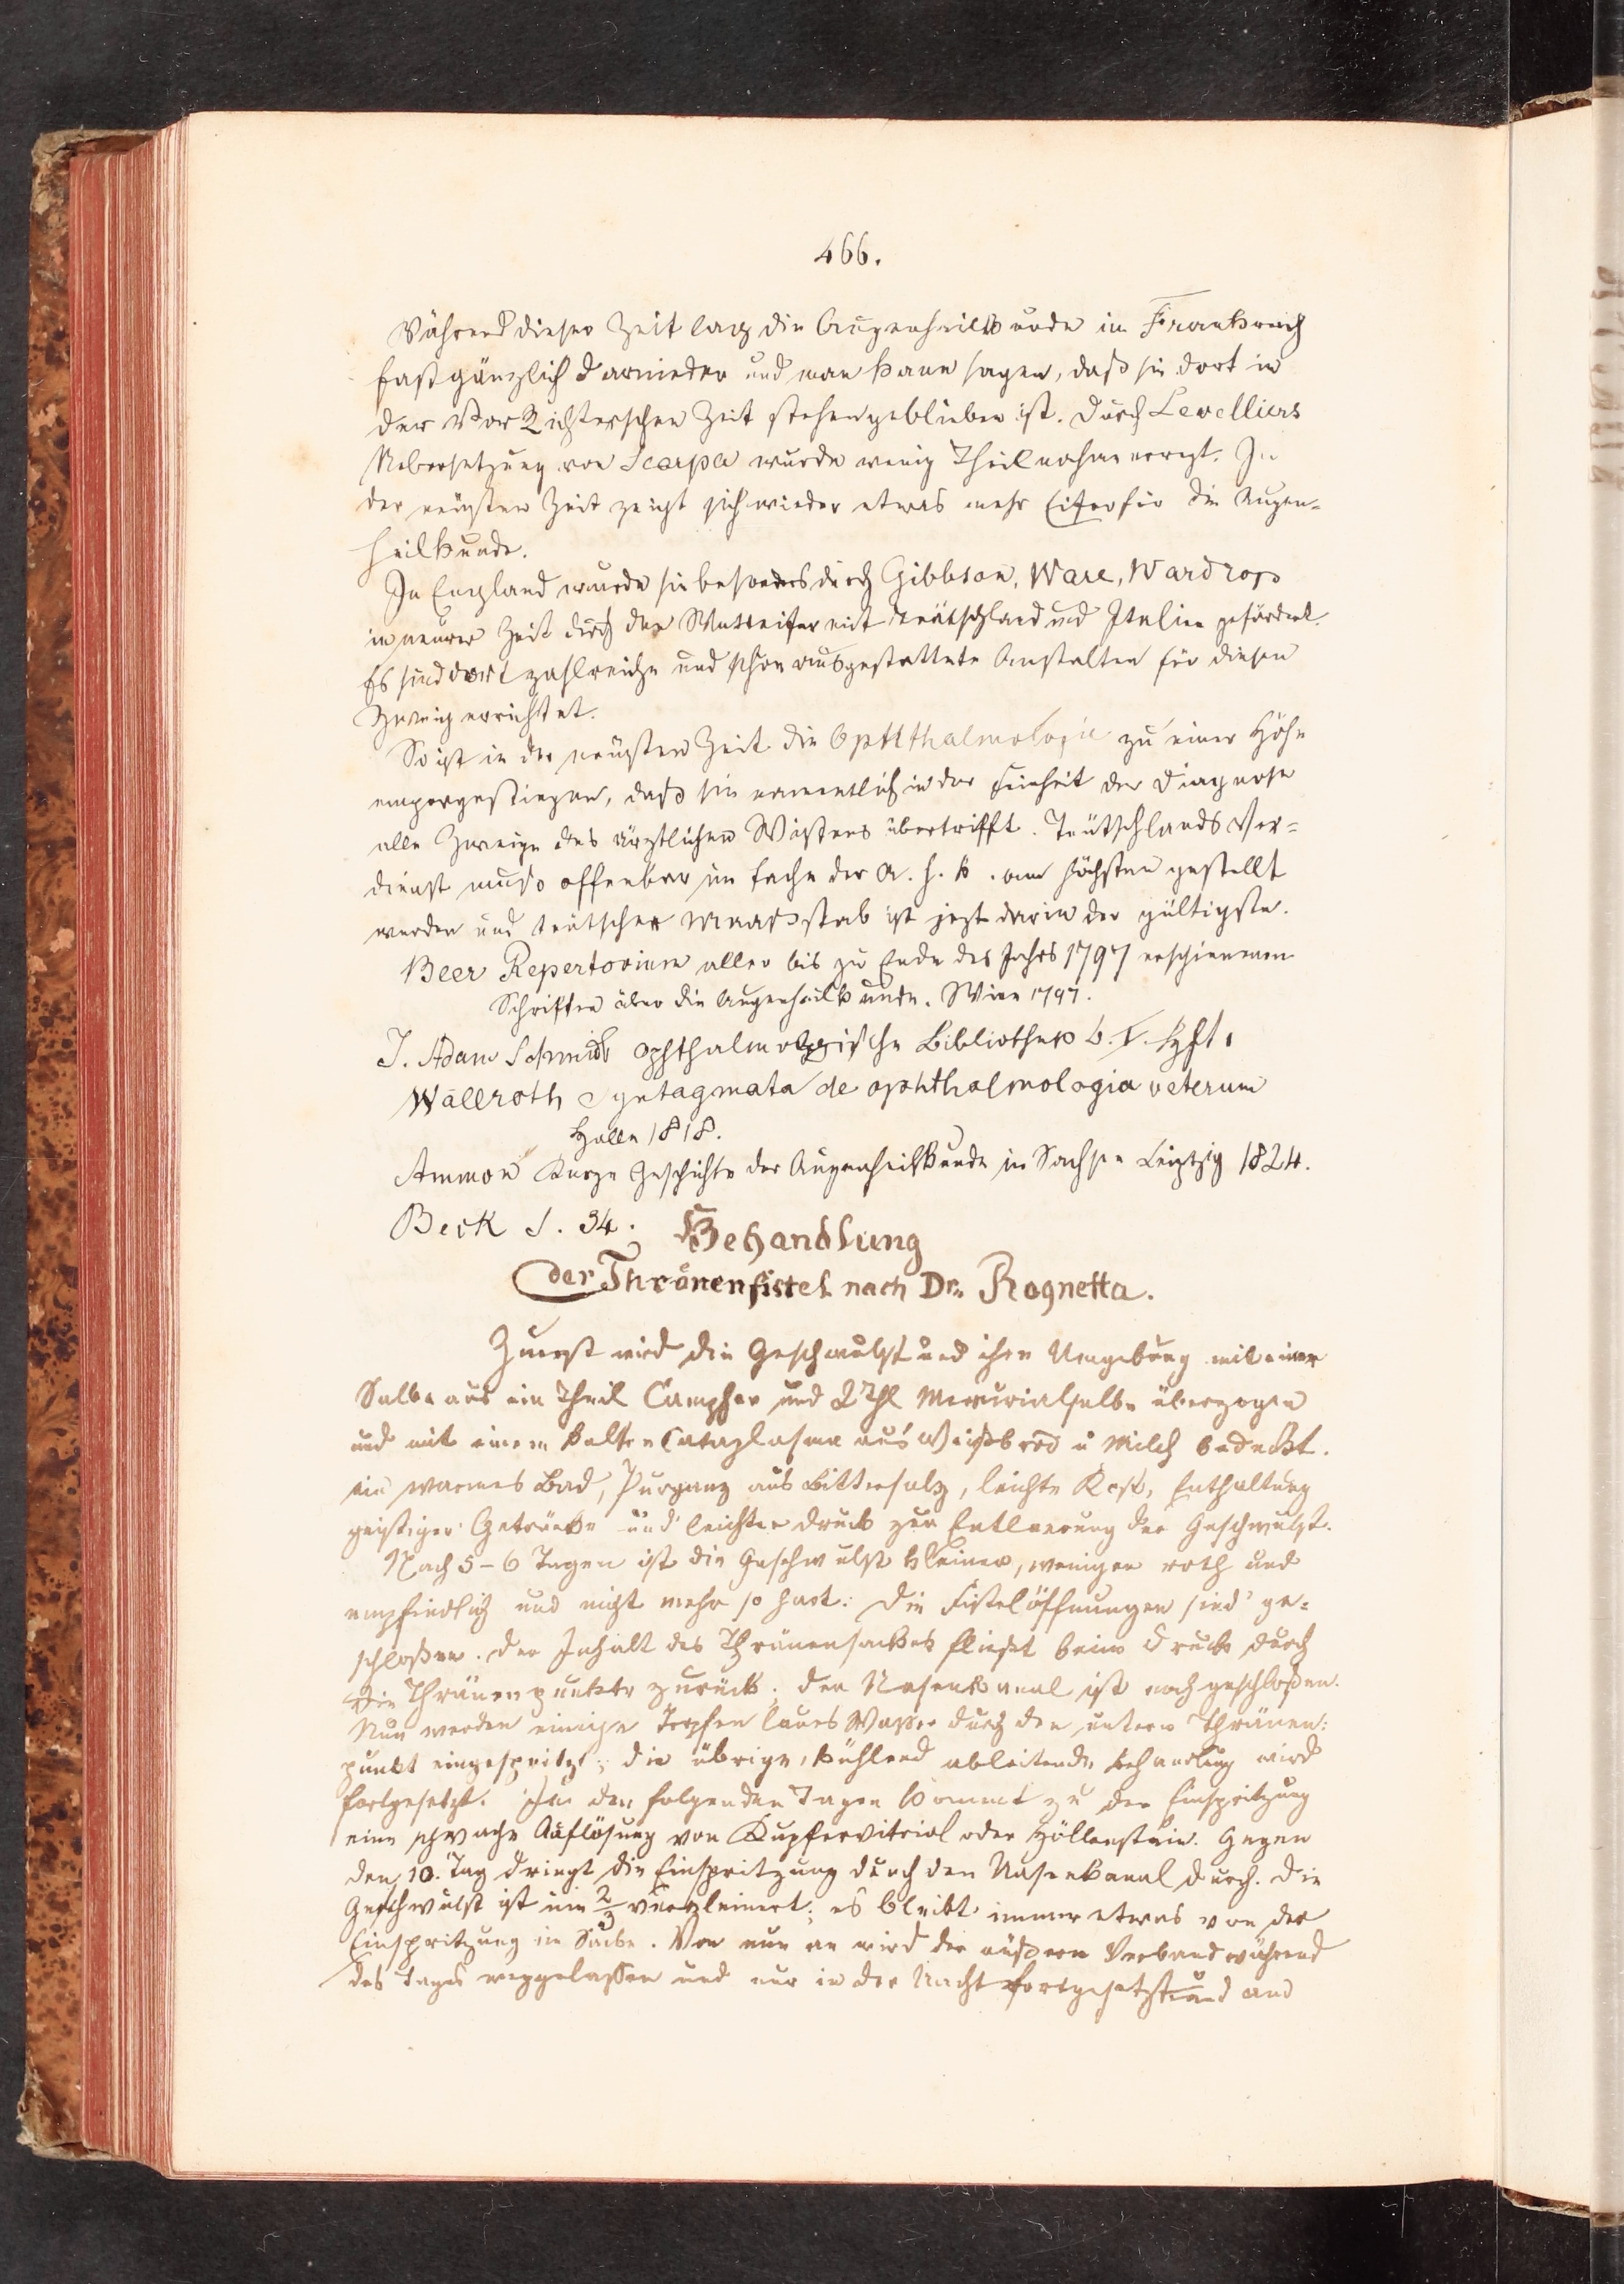 466.
Während dieser Zeit lag die Augenheilkunde in Frankreich
fast gänzlich darnieder und man kann sagen, daß sie dort in
der Vor Richterschen Zeit stehengeblieben ist. Durch Levelliers
Uebersetzung von Scarpa wurde wenig Theilnahme erregt. In
der neusten Zeit zeigt sich wieder etwas mehr Eifer für die Augen-
heilkunde.
In England wurde sie besonders durch Gibbson, Ware, Wardrop
in neurer Zeit durch den Wetteifer mit Teütschland und Italien gefördert.
Es sind dort zahlreiche und schön ausgestattete Anstalten für diesen
Zweig errichtet.
So ist in der neüsten Zeit die Ophthalmologie zu einer Höhe
emporgestiegen, daß sie namentlich in der Feinheit der Diagnose
alle Zweige des ärztlichen Wissens übertrifft. Teütschlands Ver=
dienst muß offenbar im Fache der A. h. k. am höchsten gestellt
werden und teütscher Maaßstab ist jezt darin der gültigste.
Beer Repertorium aller bis zu Ende des Jahrs 1797 erschienenen
Schriften über die Augenheilkunde. Wien 1797.
J. Adam Schmidt ophthalmologische Bibliothek b. I. Hft.
Wallroth Syntagmata de ophthalmologia veterum
Halle 1818.
Ammon Kurze Geschichte der Augenheilkunde in Sachsen Leipzig 1824.
Beck S. 34.
Behandlung
der Thränenfistel nach Dr. Rognetta.
Zuerst wird die Geschwulst und ihre Umgebung mit einer
Salbe aus ein Theil Campher und 2 Thl Mercurialsalbe überzogen
und mit einem kalten Cataplasma aus Weißbrod u Milch bedeckt.
ein warmes Bad, Purganz aus Bittersalz, leichte Kost, Enthaltung
geistiger Getränke und leichter Druck zur Entleerung der Geschwulst.
Nach 5-6 Tagen ist die Geschwulst kleiner, weniger roth und
empfindlich und nicht mehr so hart. Die Fistelöffnungen sind ge=
schloßen. Der Inhalt des Thränensackes fließt beim Druck durch
die Thränenpunkte zurück; der Nasenkanal ist noch geschloßen.
Nun werden einige Tropfen laues Waßer durch den untern Thränen=
punkt eingespritzt; die übrige, kühlend ableitende Behandlung wird
fortgesetzt. In den folgenden Tagen kommt zu der Einspritzung
eine schwache Auflösung von Kupfervitriol oder Höllenstein. Gegen
den 10. Tag dringt die Einspritzung durch den Nasenkanal durch. Die
Geschwulst ist um 2/3 verkleinert; es bleibt immer etwas von der
Einspritzung im Sacke. Von nun an wird der äußere Verband während
des Tages weggelassen und nur in der Nacht fortgesetzt und